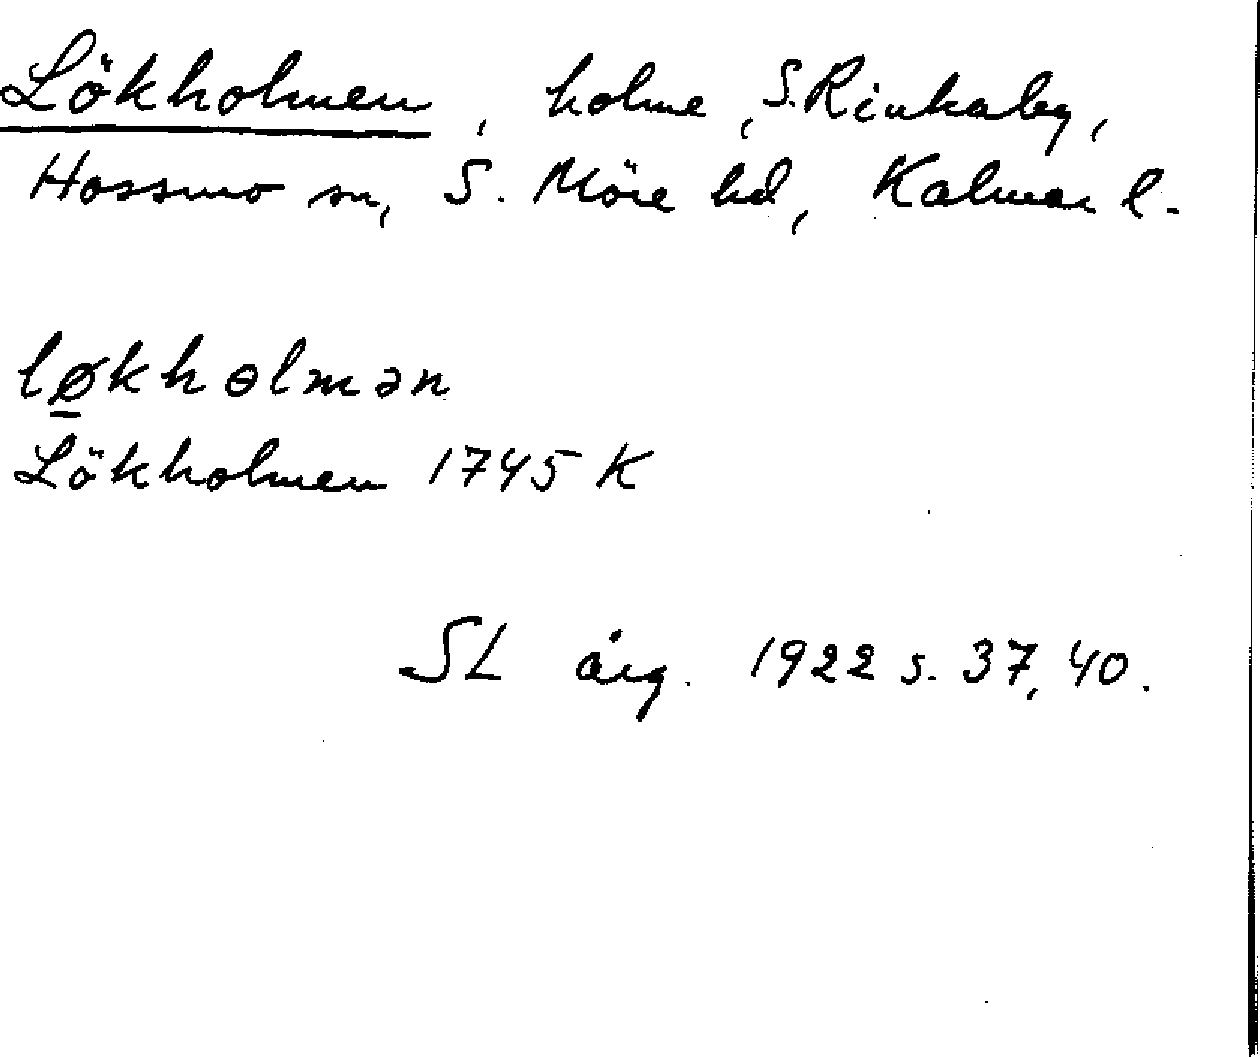 Lökholmen, holme, S. Rinkaby,
Hossmo sn, S. Möre hd, Kalmar l.
lø̲khɵlmən
Lökholmen 1745 K
SL årg. 1922 s. 37, 40.